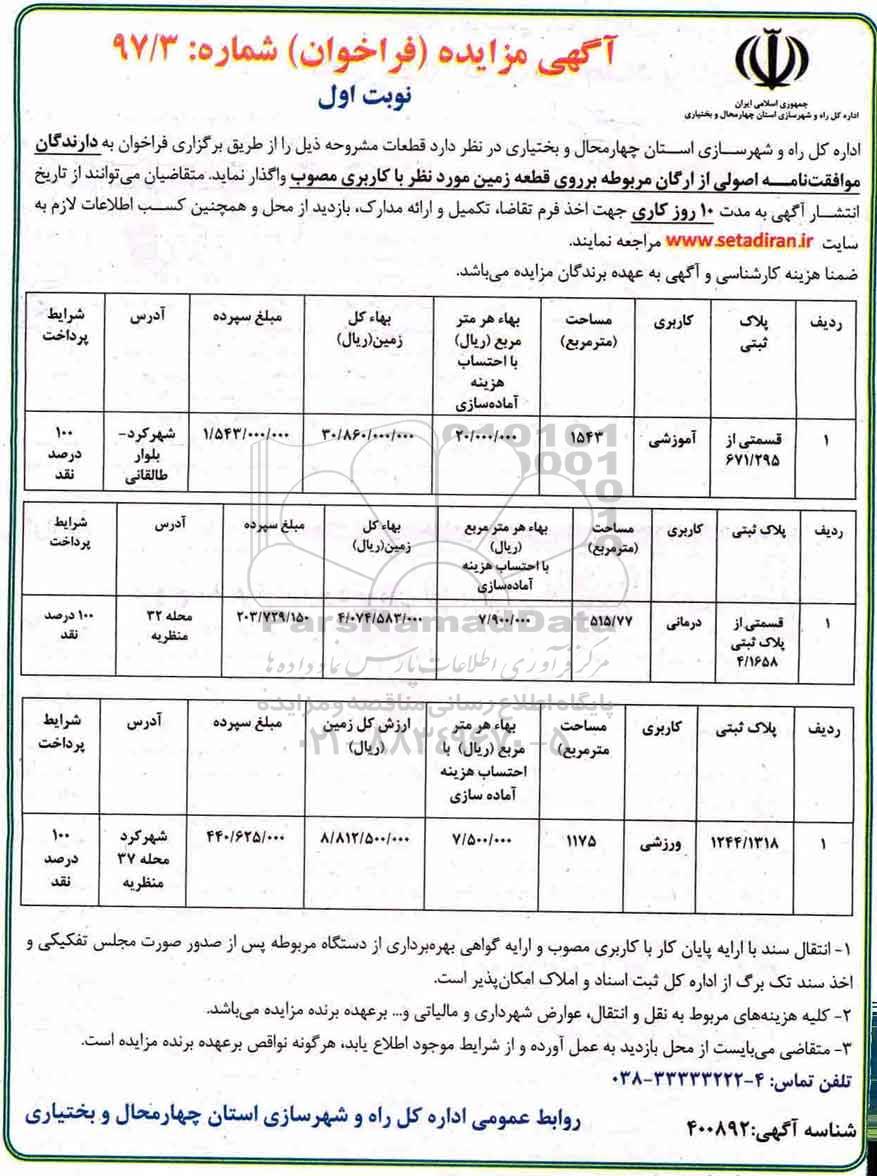 جمهوری اسلامی ایران
اداره کل راه و شهرسازی استان چهارمحال و بختیاری
آگهی مزایده (فراخوان) شماره: ۹۷/۳
نوبت اول
اداره کل راه و شهرسازی استان چهارمحال و بختیاری در نظر دارد قطعات مشروحه ذیل را از طریق برگزاری فراخوان به دارندگان
موافقت‌نامه اصولی از ارگان مربوطه برروی قطعه زمین مورد نظر با کاربری مصوب واگذار نماید. متقاضیان می‌توانند از تاریخ
انتشار آگهی به مدت ۱۰ روز کاری جهت اخذ فرم تقاضا، تکمیل و ارائه مدارک، بازدید از محل و همچنین کسب اطلاعات لازم به
سایت www.setadiran.ir مراجعه نمایند.
ضمنا هزینه کارشناسی و آگهی به عهده برندگان مزایده می‌باشد.
ردیف
پلاک ثبتی
کاربری
مساحت (مترمربع)
بهاء هر متر مربع (ریال) با احتساب هزینه آماده‌سازی
بهاء کل زمین(ریال)
مبلغ سپرده
آدرس
شرایط پرداخت
۱
قسمتی از ۶۷۱/۲۹۵
آموزشی
۱۵۴۳
۲۰/۰۰۰/۰۰۰
۳۰/۸۶۰/۰۰۰/۰۰۰
۱/۵۴۳/۰۰۰/۰۰۰
شهرکرد- بلوار طالقانی
۱۰۰ درصد نقد
ردیف
پلاک ثبتی
کاربری
مساحت (مترمربع)
بهاء هر متر مربع (ریال) با احتساب هزینه آماده‌سازی
بهاء کل زمین(ریال)
مبلغ سپرده
آدرس
شرایط پرداخت
۱
قسمتی از پلاک ثبتی ۴/۱۶۵۸
درمانی
۵۱۵/۷۷
۷/۹۰۰/۰۰۰
۴/۰۷۴/۵۸۳/۰۰۰
۲۰۳/۷۲۹/۱۵۰
محله ۳۲ منظریه
۱۰۰ درصد نقد
ParsNamadData
مرکز فرآوری اطلاعات پارس نماد داده‌ها
پایگاه اطلاع رسانی مناقصه و مزایده
۰۲۱-۸۸۳۴۹۶۷۰-۵
ردیف
پلاک ثبتی
کاربری
مساحت مترمربع)
بهاء هر متر مربع (ریال) با احتساب هزینه آماده سازی
ارزش کل زمین (ریال)
مبلغ سپرده
آدرس
شرایط پرداخت
۱
۱۲۴۴/۱۳۱۸
ورزشی
۱۱۷۵
۷/۵۰۰/۰۰۰
۸/۸۱۲/۵۰۰/۰۰۰
۴۴۰/۶۲۵/۰۰۰
شهرکرد محله ۳۷ منظریه
۱۰۰ درصد نقد
۱- انتقال سند با ارایه پایان کار با کاربری مصوب و ارایه گواهی بهره‌برداری از دستگاه مربوطه پس از صدور صورت مجلس تفکیکی و
اخذ سند تک برگ از اداره کل ثبت اسناد و املاک امکان‌پذیر است.
۲- کلیه هزینه‌های مربوط به نقل و انتقال، عوارض شهرداری و مالیاتی و... برعهده برنده مزایده می‌باشد.
۳- متقاضی می‌بایست از محل بازدید به عمل آورده و از شرایط موجود اطلاع یابد، هرگونه نواقص برعهده برنده مزایده است.
تلفن تماس: ۴-۳۳۳۳۳۲۲۲-۰۳۸
روابط عمومی اداره کل راه و شهرسازی استان چهارمحال و بختیاری
شناسه آگهی:۴۰۰۸۹۲